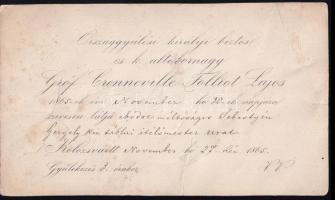 Országgyülési királyi biztos
cs k. altábornagy
Gróf Crenneville Folliot Lajos
1865-ik évi November hó 28-ik napjára
szivesen látja ebédre méltóságos Sebestyén
Gergely kir. táblai itélőmester urat
Kolozsvártt November hó 27-kén 1865.
Gyülekezés 3. órakor